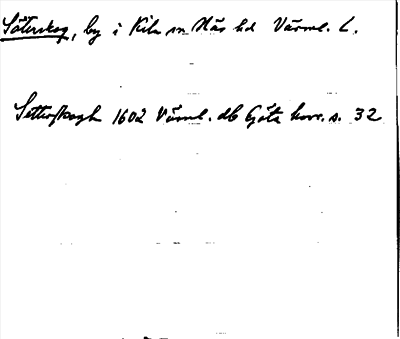 Säterskog, by i Kila sn Näs hd Värml. L.
Setterskogh 1602 Värml. db Göta hovr. s. 32